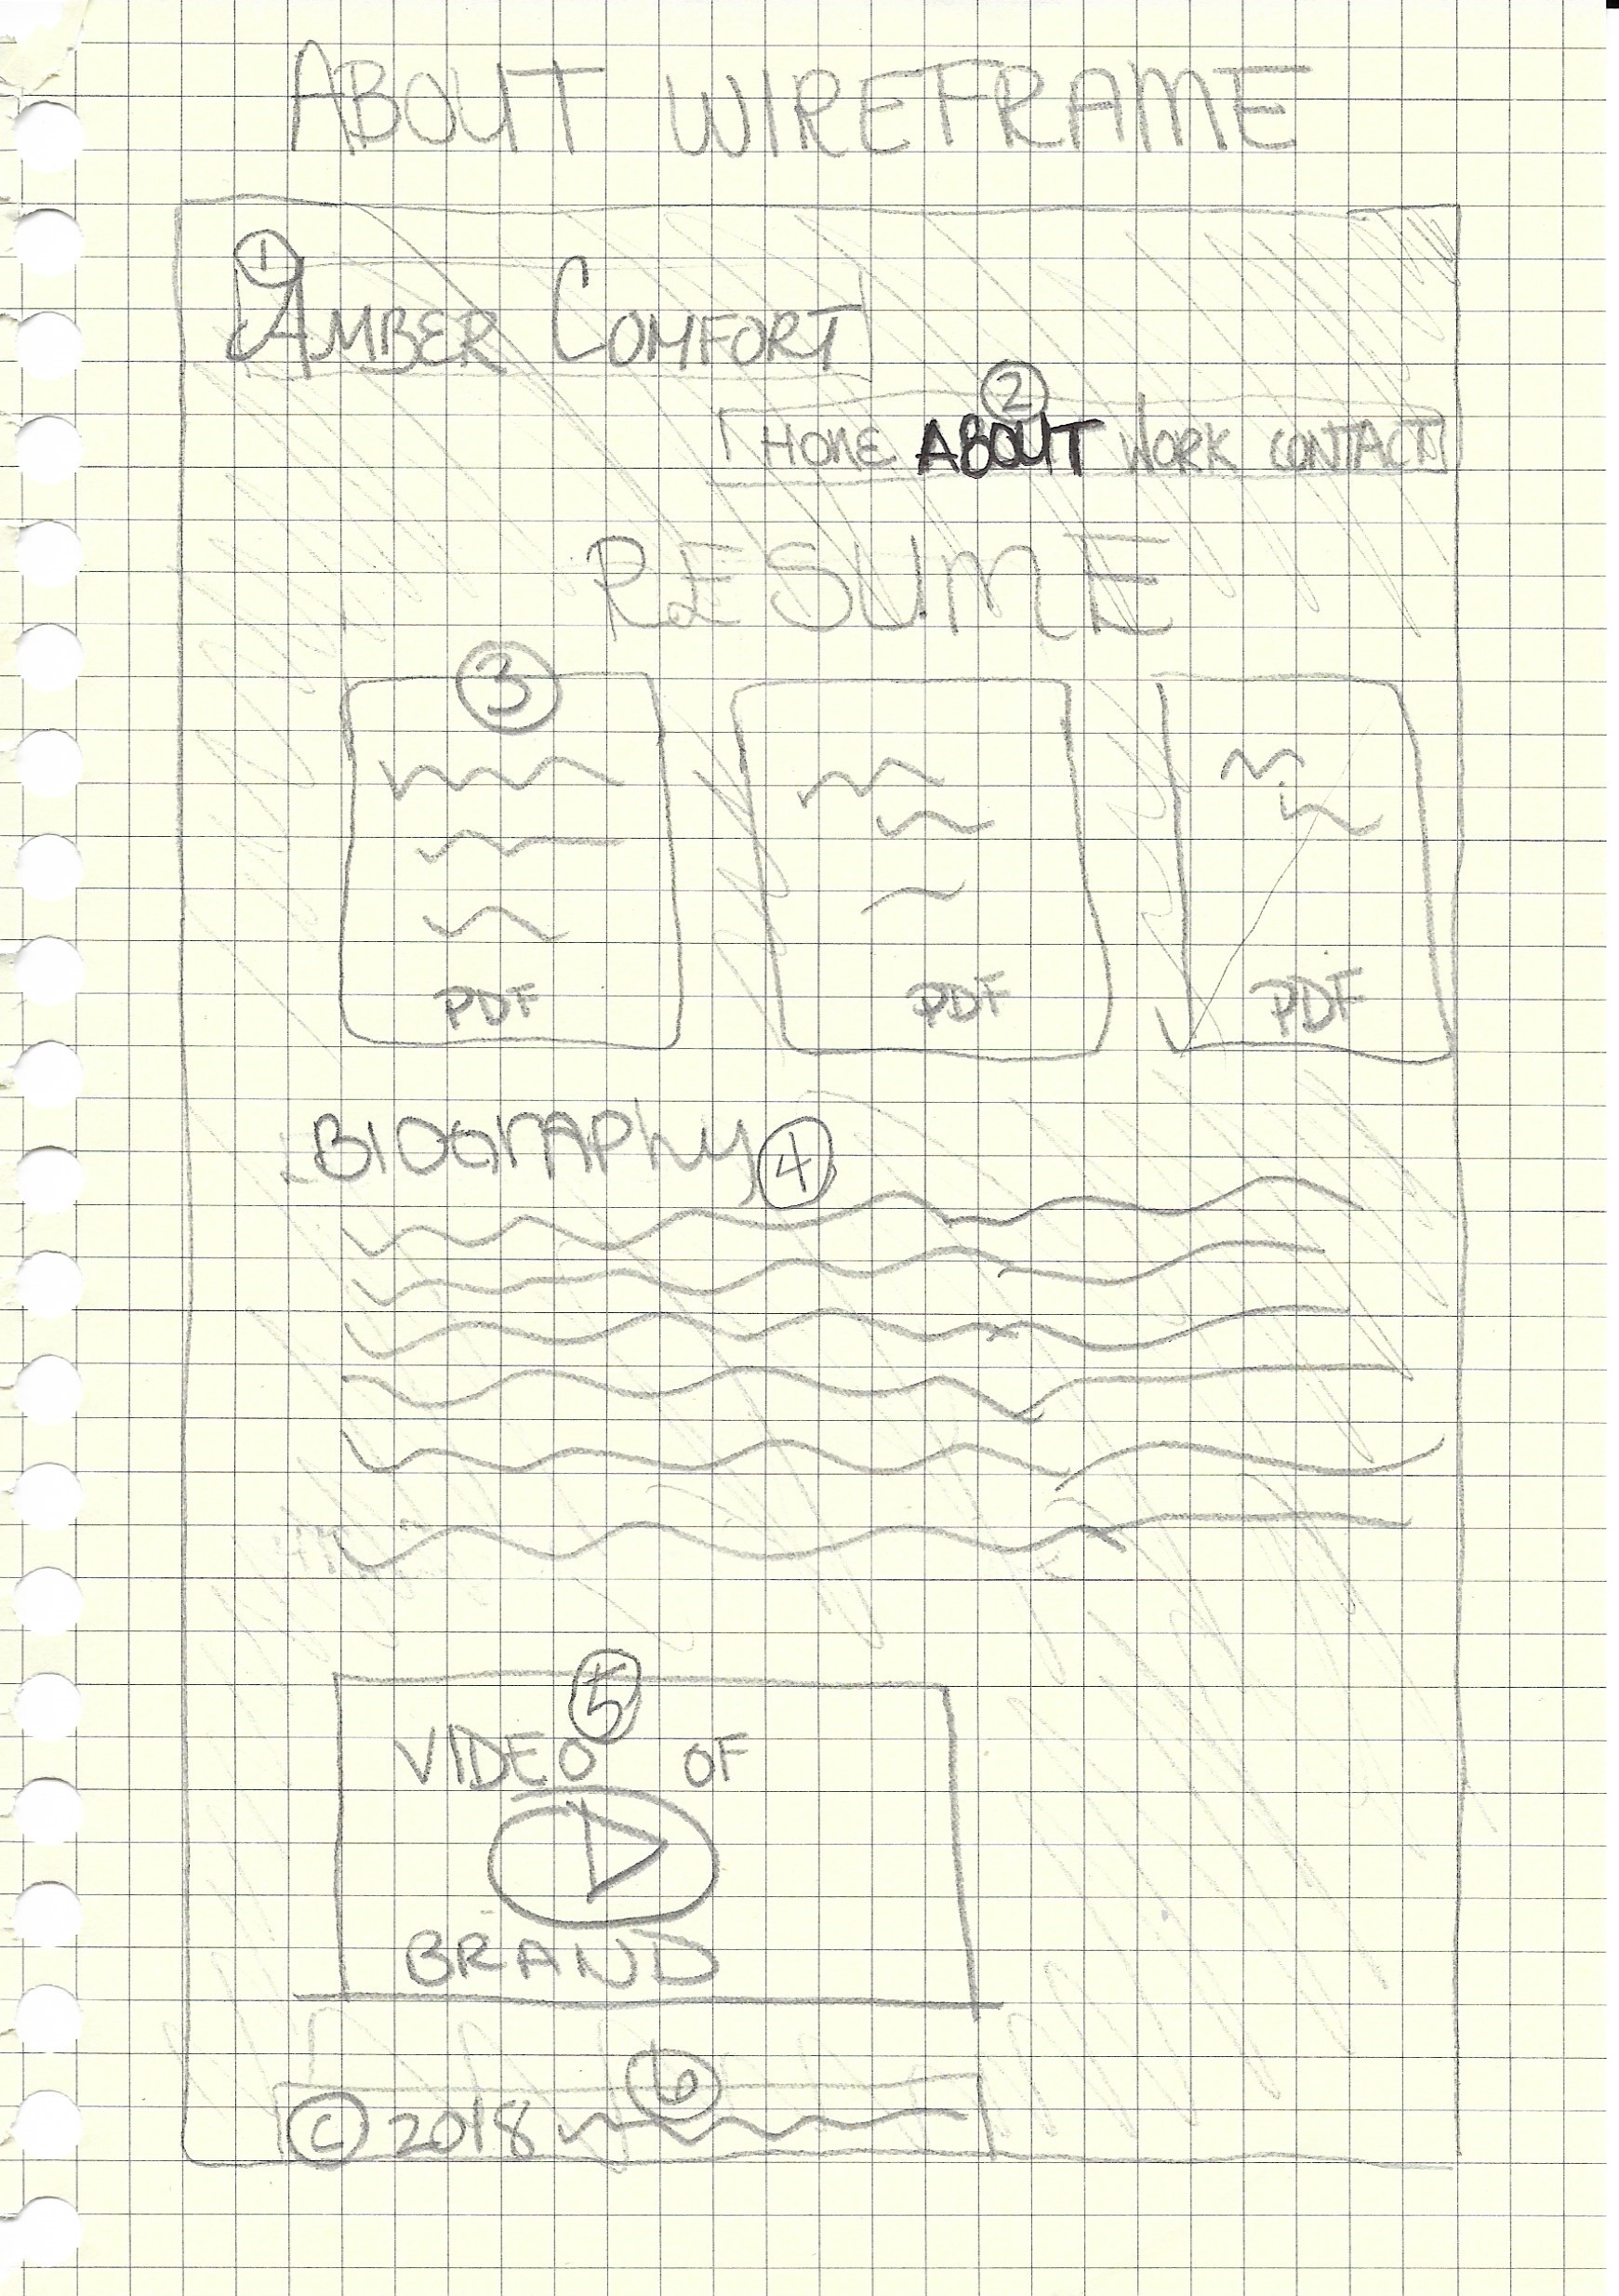 ABOUT WIREFRAME
1
AMBER COMFORT
2
HOME ABOUT WORK CONTACT
RESUME
3
PDF PDF PDF
BIOGRAPHY 4
5
VIDEO OF
BRAND
6
© 2018